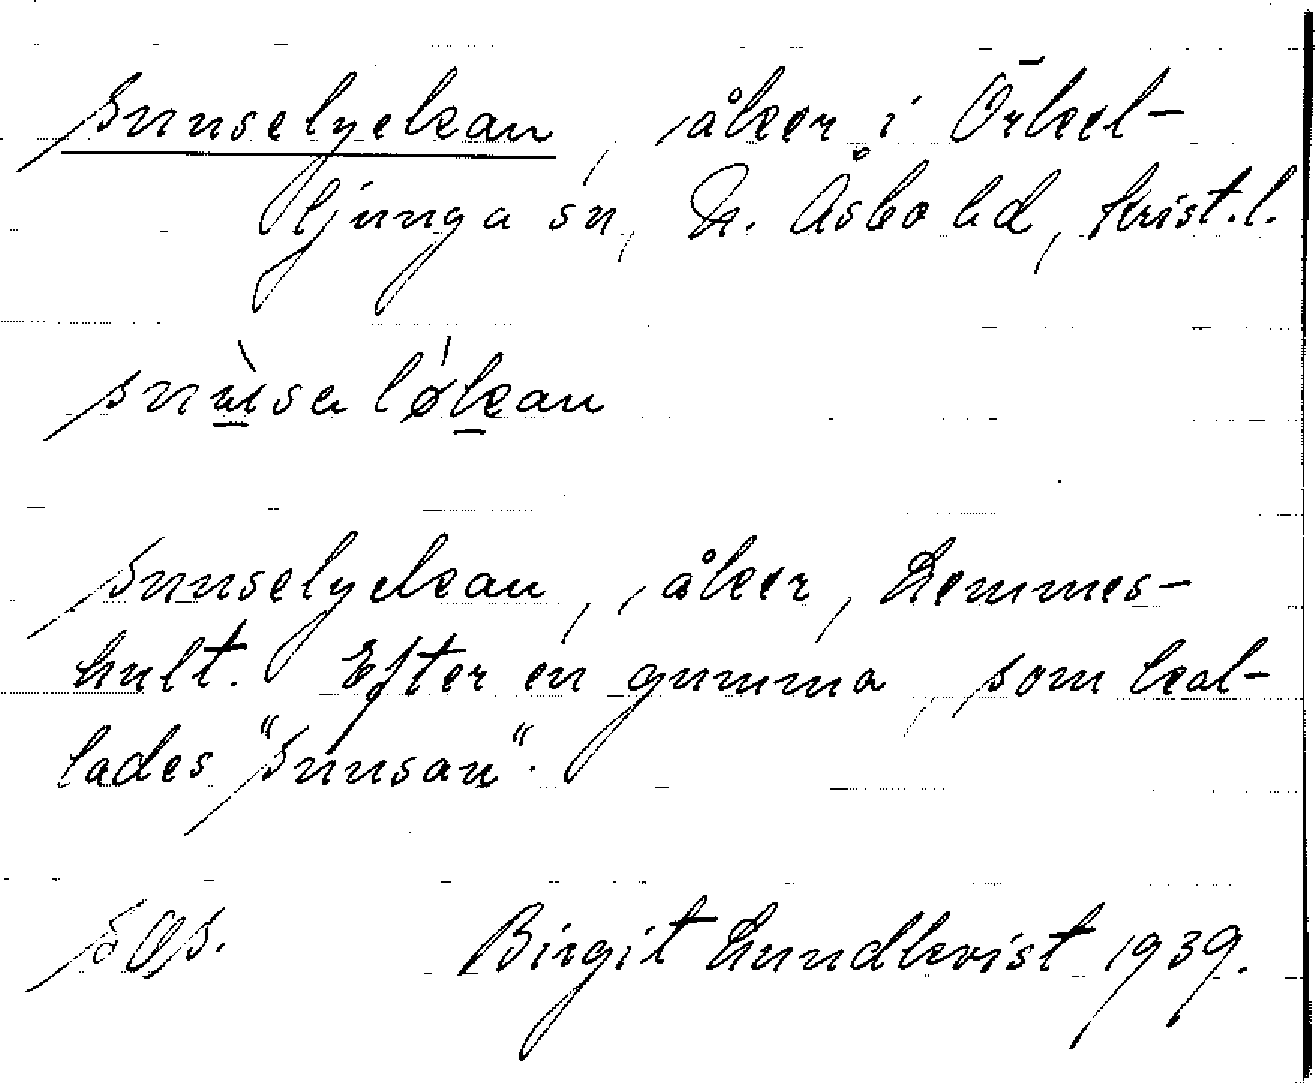 Snuselyckan, åker i Örkel-
ljunga sn, N. Åsbo hd, Krist.l.
snùsaløkan
Snuselyckan, åker, Lemmes-
hult. Efter en gumma, som kal-
lades "Snusan".
SOS. Birgit Lundkvist 1939.